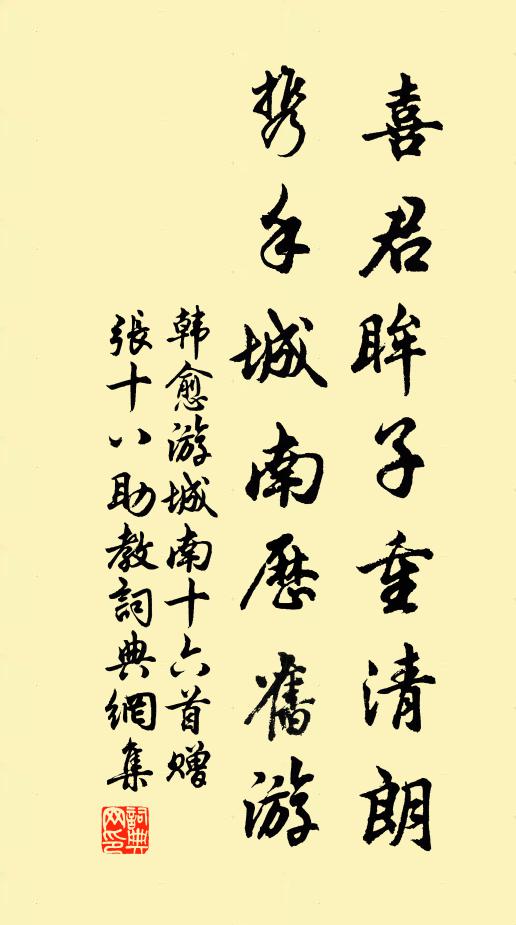 喜君眸子重清朗
携手城南歷舊游
韩愈游城南十六首赠
張十八助教詞典網集
詞典網印